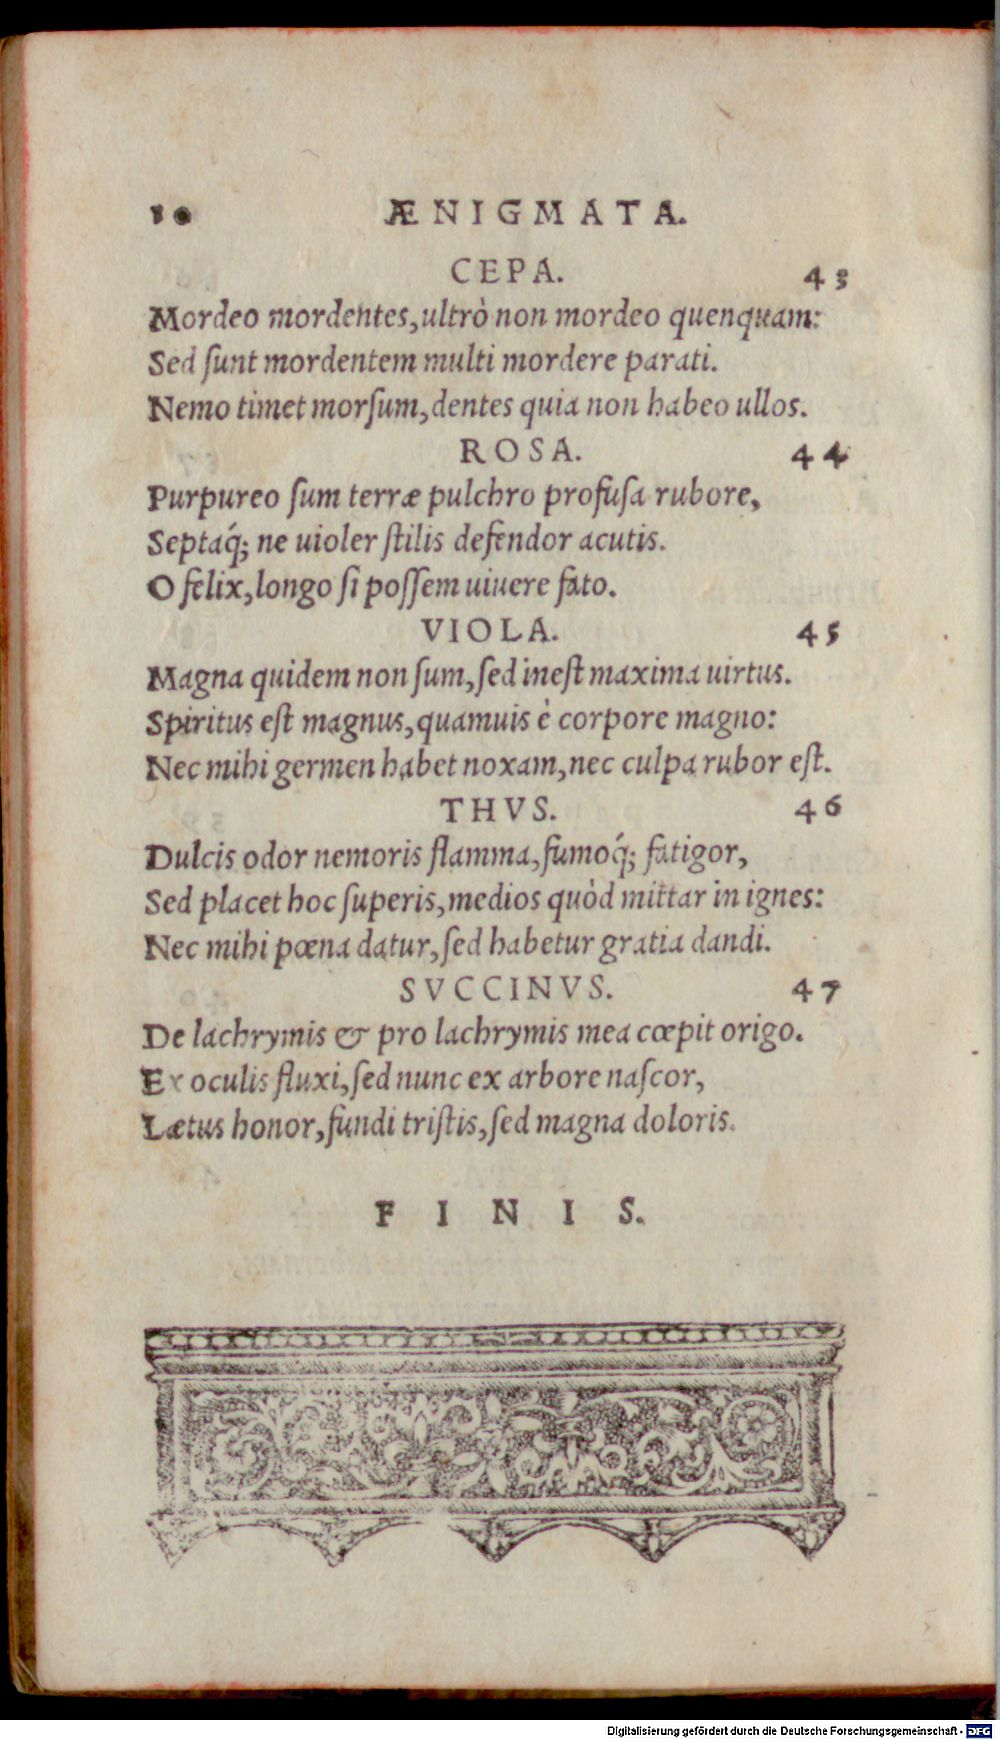 10 ÆNIGMATA.
CEPA. 43
Mordeo mordentes, ultrò non mordeo quenquam:
Sed ſunt mordentem multi mordere parati.
Nemo timet morſum, dentes quia non habeo ullos.
ROSA. 44
Purpureo ſum terræ pulchro profuſa rubore,
Septaq́; ne uioler ſtilis defendor acutis.
O felix, longo ſi poſſem uiuere fato.
VIOLA. 45
Magna quidem non ſum, ſed ineſt maxima uirtus.
Spiritus eſt magnus, quamuis è corpore magno:
Nec mihi germen habet noxam, nec culpa rubor eſt.
THVS. 46
Dulcis odor nemoris flamma, fumoq́; fatigor,
Sed placet hoc ſuperis, medios quòd mittar in ignes:
Nec mihi pœna datur, ſed habetur gratia dandi.
SVCCINVS. 47
De lachrymis & pro lachrymis mea cœpit origo.
Ex oculis fluxi, ſed nunc ex arbore naſcor,
Lætus honor, fundi triſtis, ſed magna doloris.
FINIS.
Digitalisierung gefördert durch die Deutsche Forschungsgemeinschaft - DFG